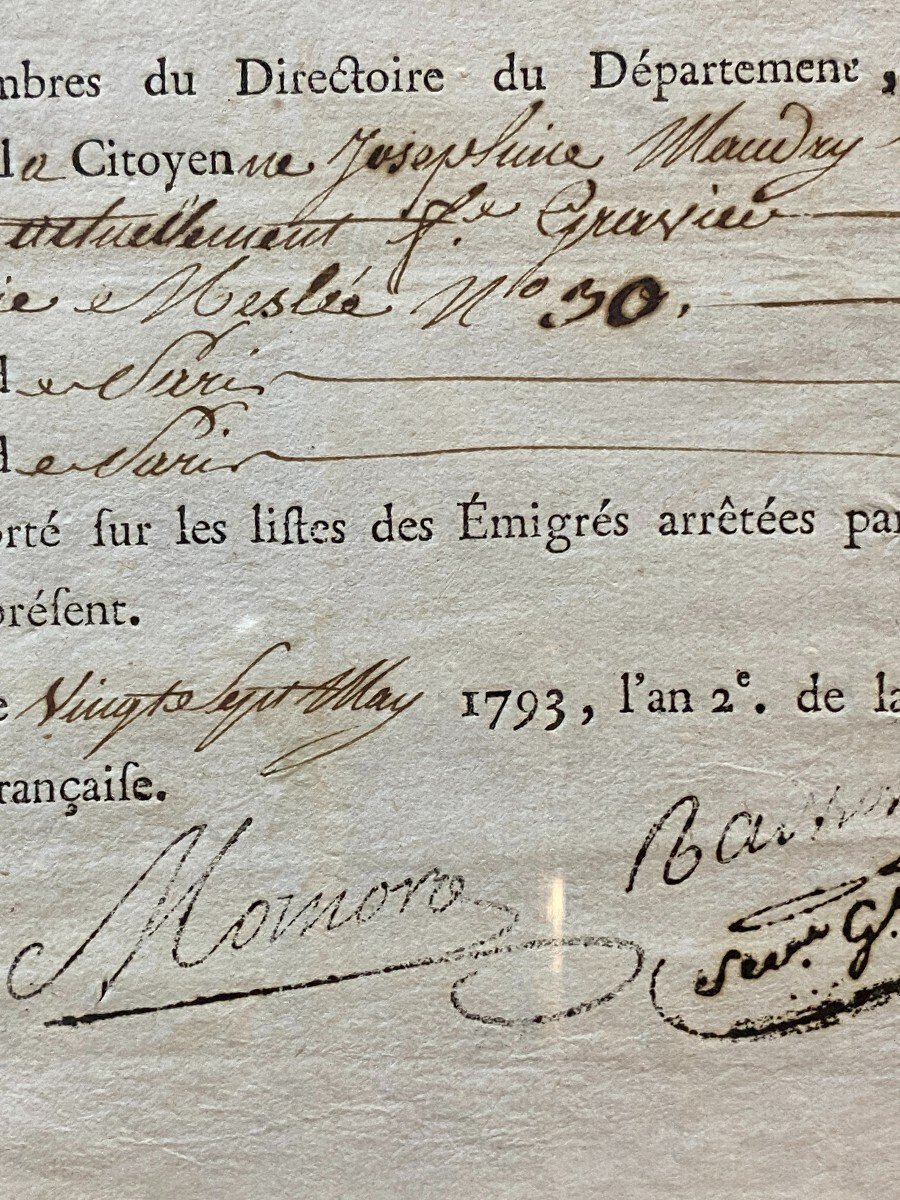 mbres du Directoire du Département,
la Citoyenne Josephine Maudry
actuellement fe. Gravier
ie Meslée No 30.
de Paris
de Paris
orté ſur les liſtes des Émigrés arrêtées par
préſent.
e Vingt Sept May 1793, l'an 2e. de la
rançaiſe.
Momoro
Gl.